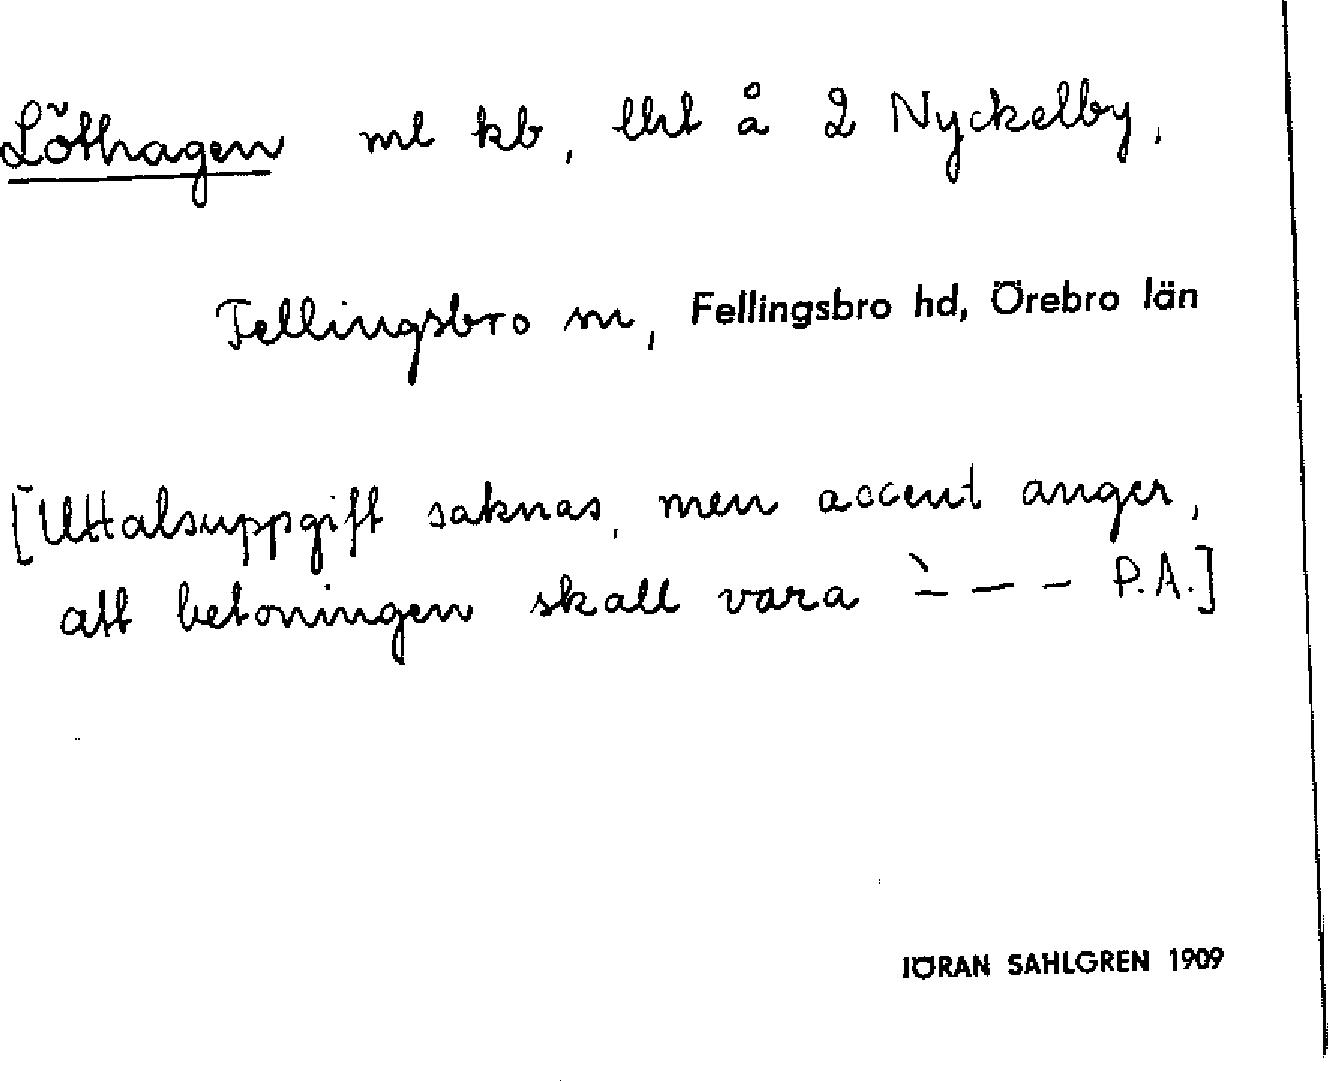 Löthagen ml kb, lht å 2 Nyckelby.
Fellingsbro sn, Fellingsbro hd, Örebro län
[Uttalsuppgift saknas, men accent anger,
att betoningen skall vara ˋ– – – P.A.]
JÖRAN SAHLGREN 1909